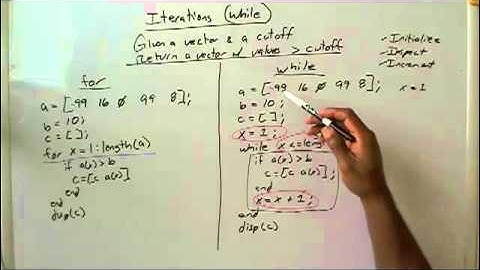 Iterations (while)
Given a vector & a cutoff
Return a vector w/ values > cutoff
✓ Initialize
✓ Inspect
✓ Increment
for
a = [-99 16 0 99 8];
b = 10;
c = [ ];
for x = 1:length(a)
if a(x)>b
c=[c a(x)]
end
end
disp(c)
while
a = [-99 16 0 99 8];
x = 1
b = 10;
c = [ ];
x = 1;
while x <=
if a(x)>b
c=[c a(x)];
end
x = x + 1;
end
disp(c)